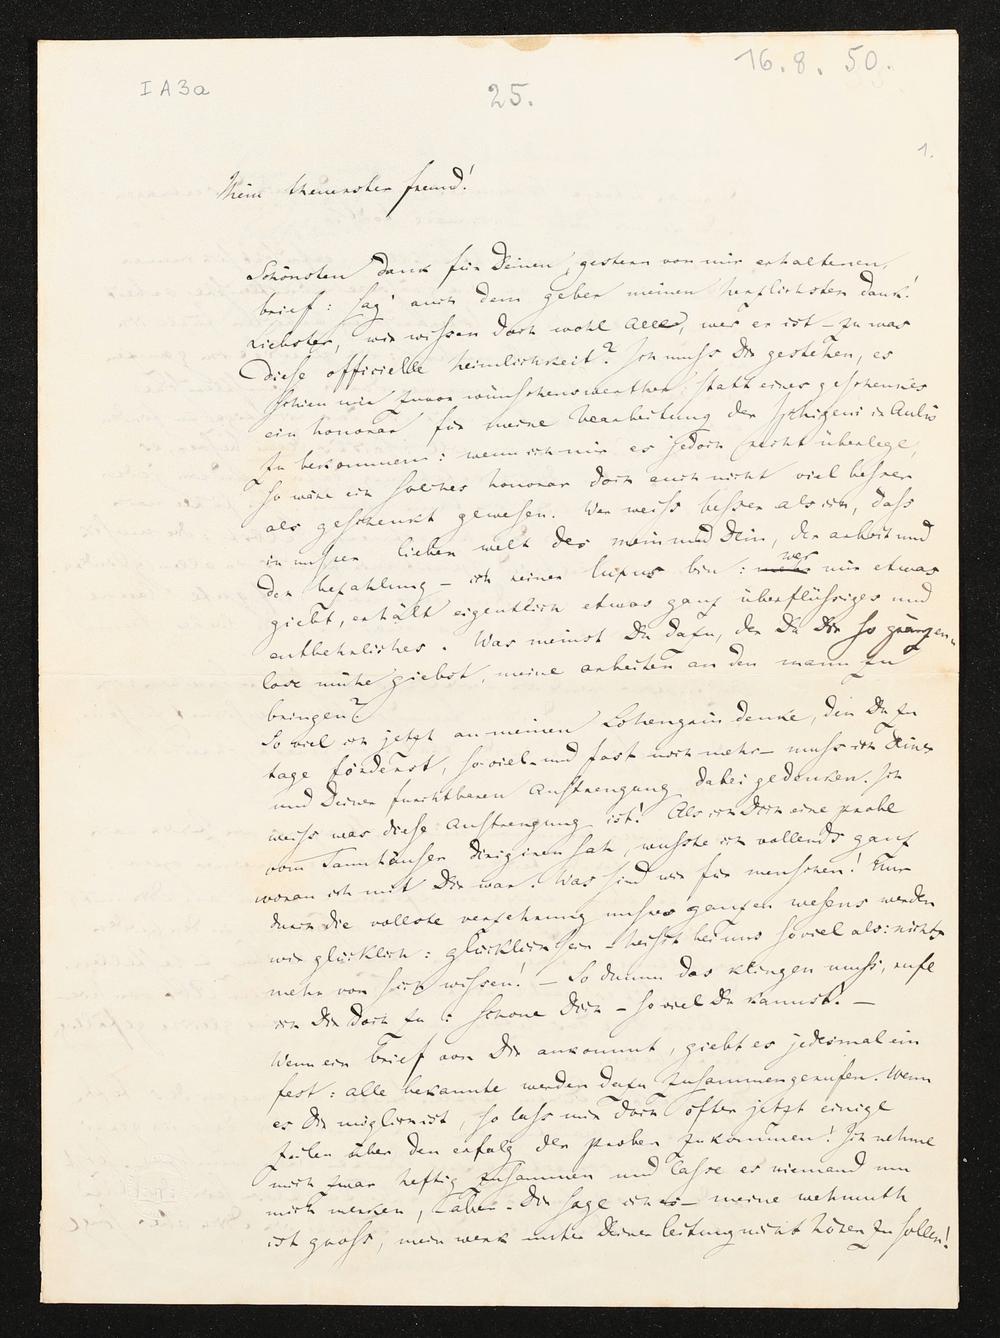 I A 3a
25.
16. 8. 50.
1.
Mein theuerster freund!
Schönsten Dank für Deinen, gestern von mir erhaltenen,
brief: sag' auch dem geber meinen herzlichsten dank!
Liebster, wir wissen doch wohl Alle, wer er ist – zu was
diese officielle heimlichkeit? Ich muss Dir gestehen, es
schien mir zuvor wünschenswerther statt eines geschenkes
ein honorar für meine bearbeitung der Iphigenia in Aulis
zu bekommen: wenn ich mir es jedoch recht überlege,
so wäre ein solches honorar doch auch nicht viel besser
als geschenkt gewesen. Wer weiss besser als ich, dass
in unsrer lieben welt des mein und Dein, der arbeit und
der bezahlung – ich reiner lupus bin: wer mir etwas
giebt, erhält eigentlich etwas ganz überflüssiges und
entbehrliches. Was meinst Du dazu, der Du Dir so gränzen-
lose mühe giebst, meine arbeiten an den mann zu
bringen?
So viel ich jetzt an meinen Lohengrin denke, den Du zu
tage förderst, so viel – und fast noch mehr – muss ich Deiner
und Deiner furchtbaren Anstrengung dabei gedenken. Ich
weiss was diese Anstrengung ist! Als ich Dich eine probe
vom Tannhäuser dirigiren sah, wusste ich vollends ganz
woran ich mit Dir war. Was sind wir für menschen! Nur
durch die vollste verzehrung unsres ganzen wesens werden
wir glücklich: glücklich sein – heisst bei uns so viel als: nichts
mehr von sich wissen! – So dumm das klingen muss, rufe
ich Dir doch zu: schone Dich – so viel Du kannst! –
Wenn ein brief von Dir ankommt, giebt es jedesmal ein
fest: alle bekannte werden dazu zusammengerufen. Wenn
es Dir möglich ist, so lass mir doch öfter jetzt einige
zeilen über den erfolg der proben zukommen! Ich nehme
mich zwar heftig zusammen und lasse es niemand um
mich merken, aber – Dir sage ich es – meine wehmuth
ist gross, mein werk unter Deiner leitung nicht hören zu sollen!